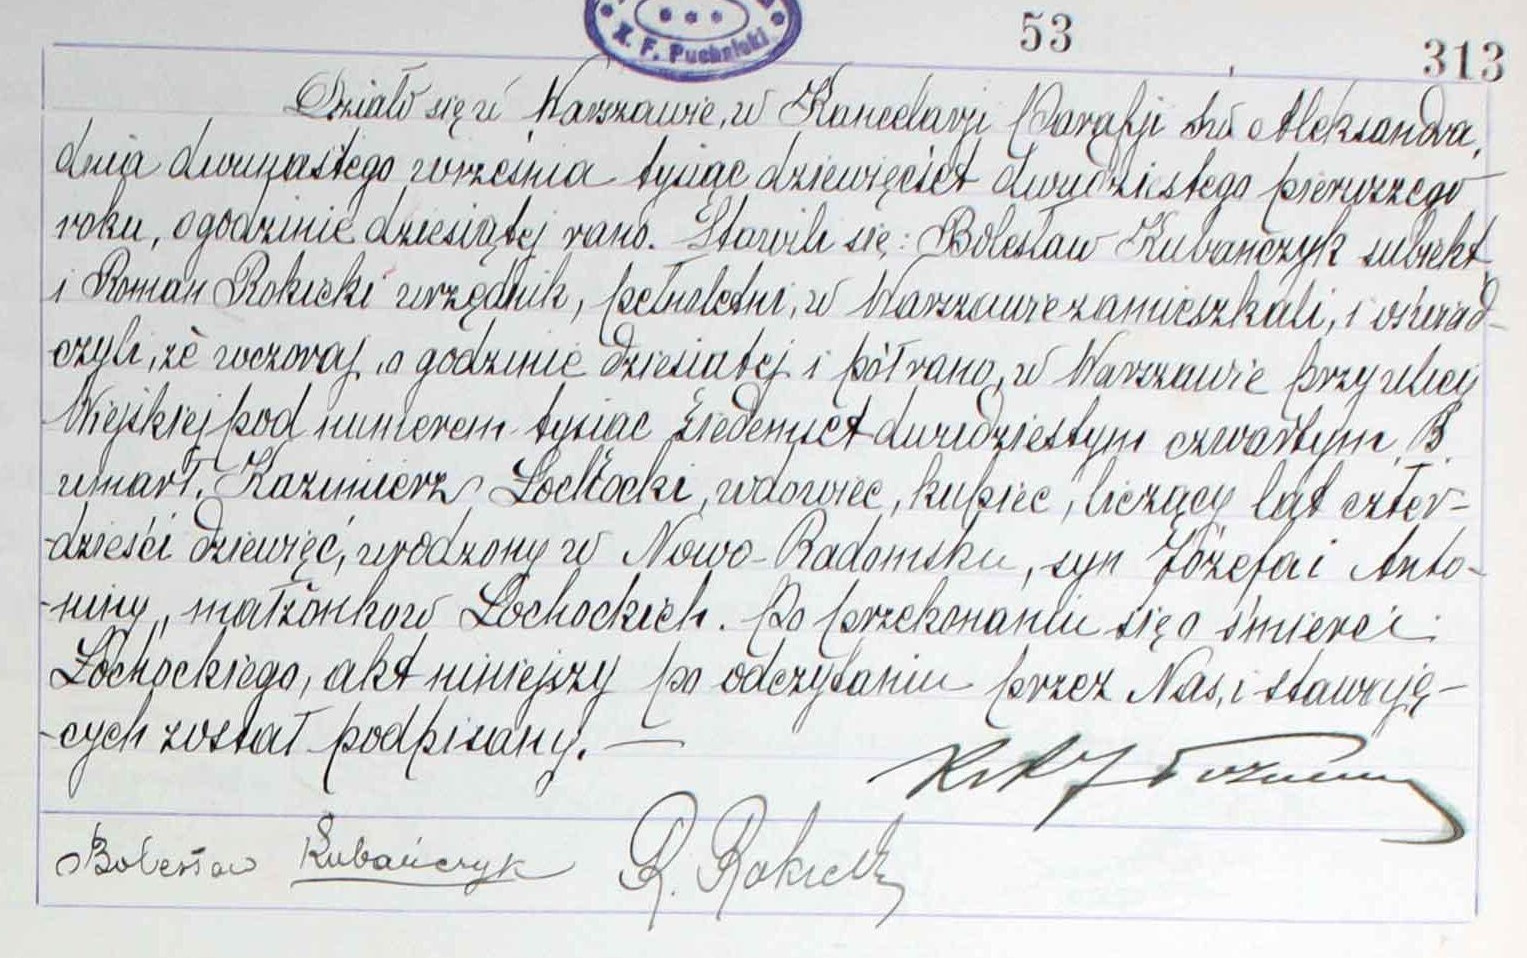 X. F. Puchalski
53
313
Działo się w Warszawie, w Kancelarji Parafji Św Aleksandra,
dnia dwunastego września tysiąc dziewięćset dwudziestego pierwszego
roku, o godzinie dziesiątej rano. Stawili się: Bolesław Kubańczyk subiekt
i Roman Rokicki urzędnik, pełnoletni, w Warszawie zamieszkali, i oświad-
czyli, że wczoraj, o godzinie dziesiątej i pół rano, w Warszawie przy ulicy
Wiejskiej pod numerem tysiąc siedemset dwudziestym czwartym B.
umarł, Kazimierz Łochocki, wdowiec, kupiec, liczący lat czter-
-dzieści dziewięć, urodzony w Nowo-Radomsku, syn Józefa i Anto-
-niny, małżonków Łochockich. Po przekonaniu się o śmierci
Łochockiego, akt niniejszy po odczytaniu przez Nas, i stawają-
-cych został podpisany. —
Bolesław Kubańczyk R. Rokicki